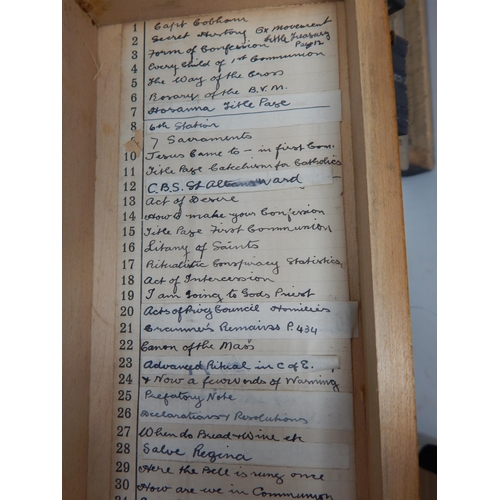 1 Capt Cobham
2 Secret History Ox Movement
3 Form of Confession Little Treasury
4 Every Child of 1st Communion
5 The Way of the Cross
6 Rosary of the B.V.M.
7 Hosanna Title Page
8 6th Station
7 Sacraments
10 Jesus Came to - in first Con.
11 Title Page Catechism for Catholics
12 C.B.S. St Albans Ward
13 Act of Desire
14 How to make your Confession
15 Title Page First Communion
16 Litany of Saints
17 Ritualistic Conspiracy Statistics
18 Act of Intercession
19 I am Going to Gods Priest
20 Acts of Privy Council Homilies
21 Cranmer's Remains P. 434
22 Canon of the Mass
23 Advanced Ritual in C of E.
24 & Now a few words of Warning
25 Prefatory Note
26 Declarations & Resolutions
27 When do Bread & Wine etc
28 Salve Regina
29 Here the Bell is rung once
30 How are we in Communion